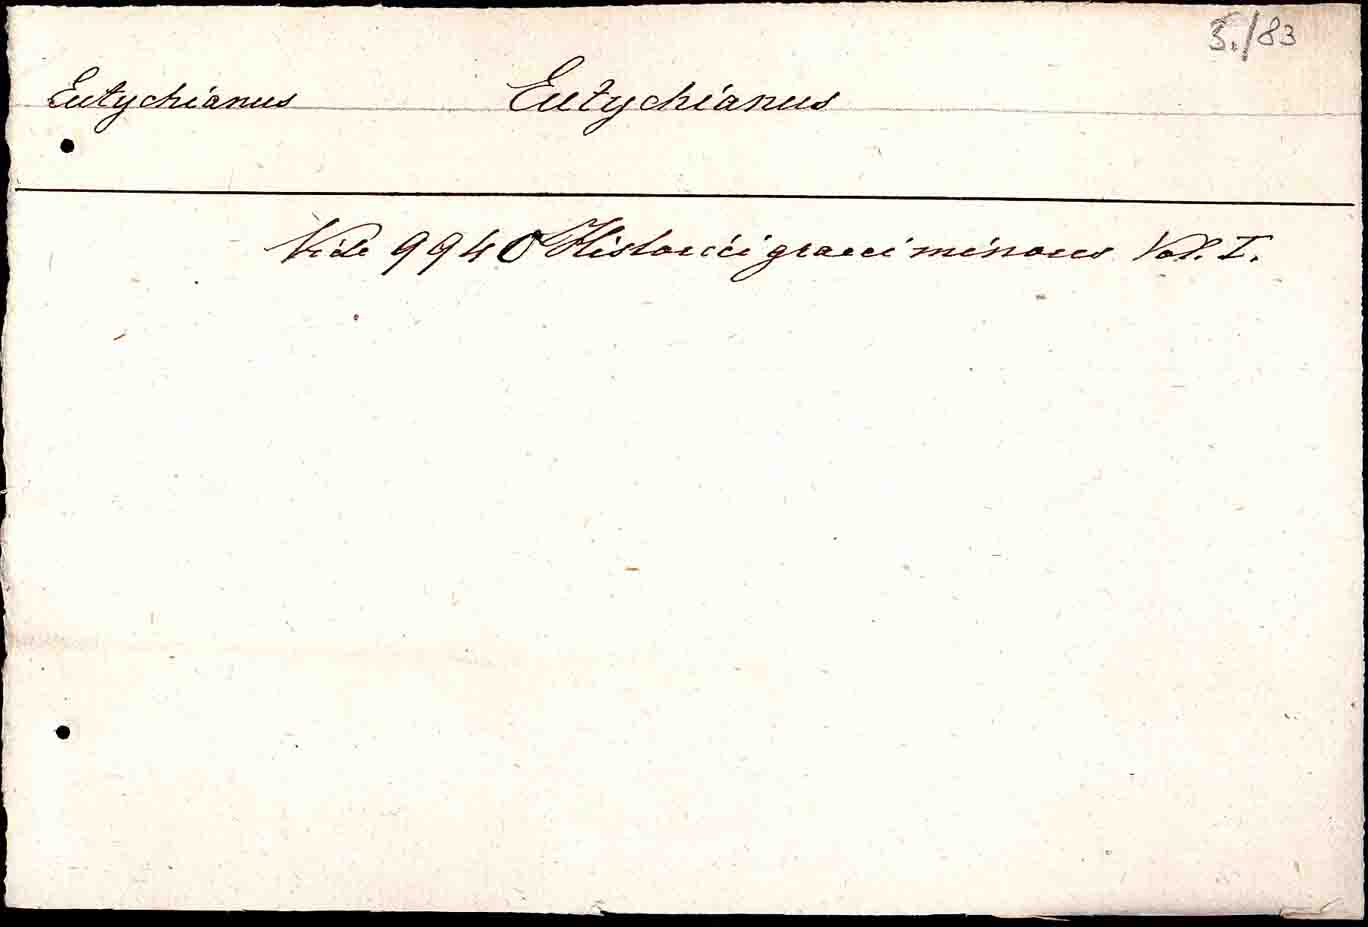 3./83
Eutychianus Eutychianus
Vide 9940 Historici graeci minores Vol. I.